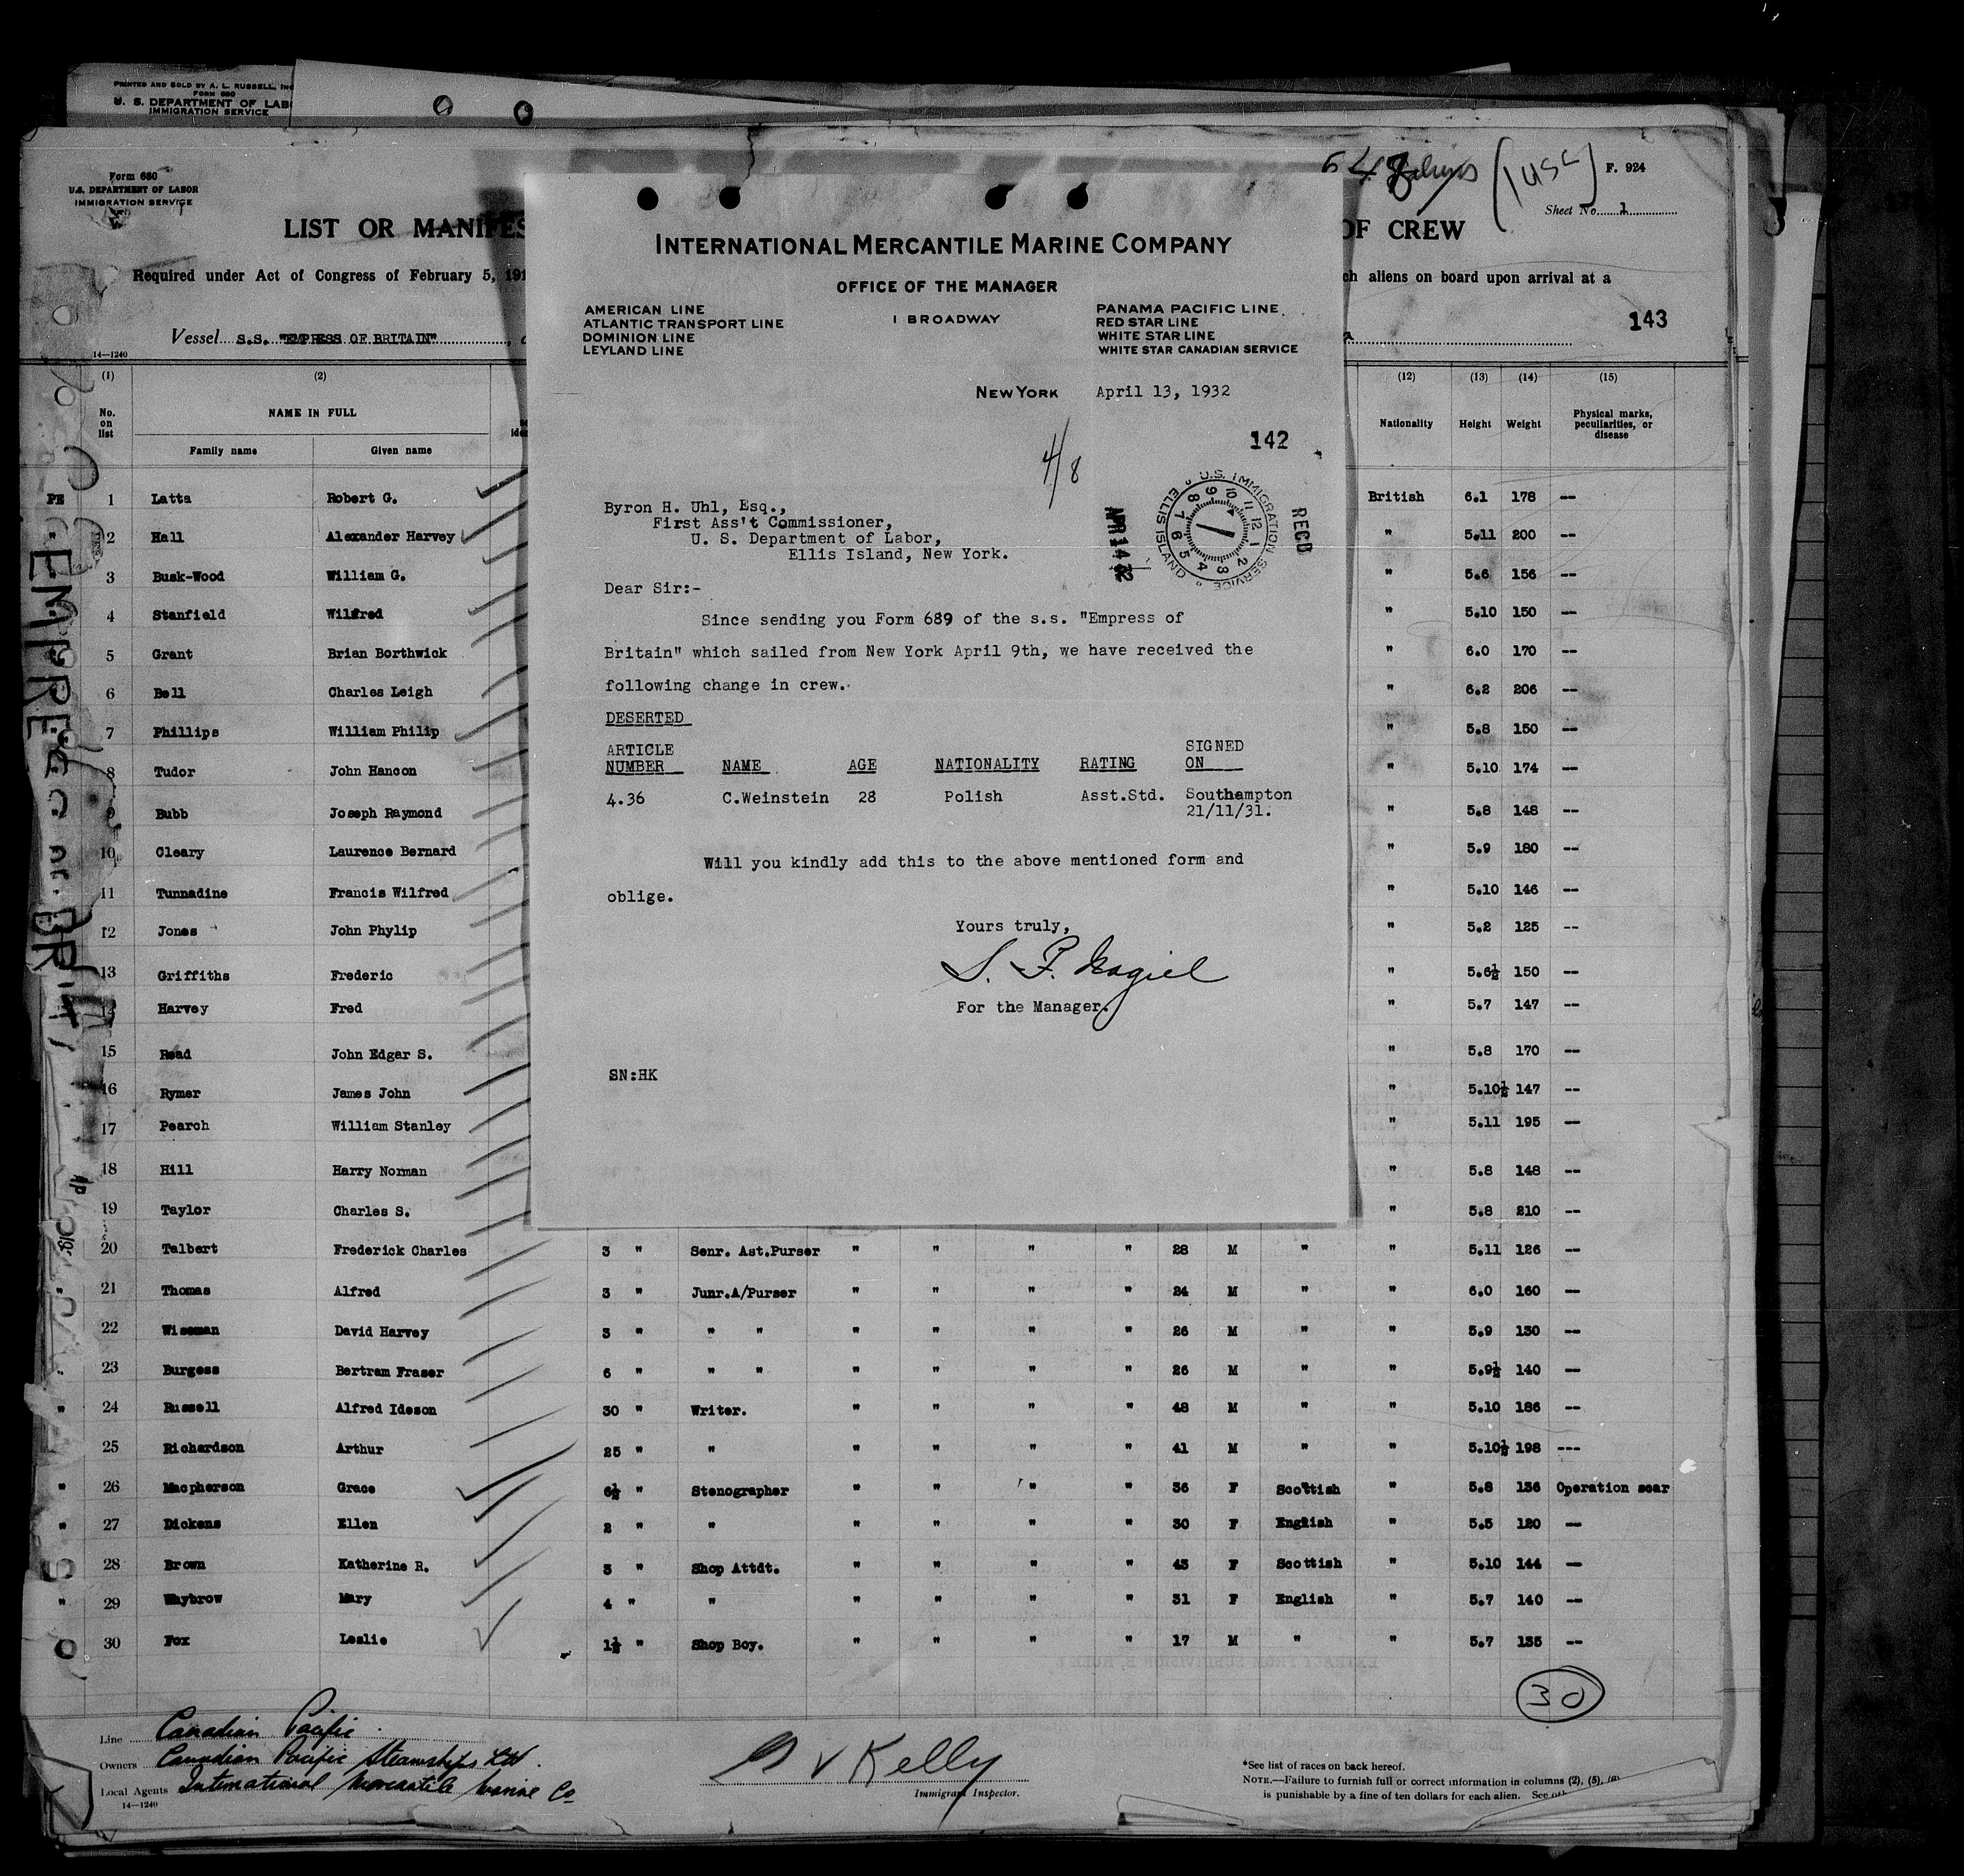 PRINTED AND SOLD BY A. L. RUSSELL, INC
FORM 680
U. S. DEPARTMENT OF LAB
IMMIGRATION SERVICE
Form 680
U.S. DEPARTMENT OF LABOR
IMMIGRATION SERVICE
F. 924
Sheet No. 1
LIST OR MANIFES
OF CREW
Required under Act of Congress of February 5, 191
ch aliens on board upon arrival at a
143
Vessel S.S. "EMPRESS OF BRITAIN"
14—1240
INTERNATIONAL MERCANTILE MARINE COMPANY
OFFICE OF THE MANAGER
1 BROADWAY
AMERICAN LINE
ATLANTIC TRANSPORT LINE
DOMINION LINE
LEYLAND LINE
PANAMA PACIFIC LINE
RED STAR LINE
WHITE STAR LINE
WHITE STAR CANADIAN SERVICE
NEW YORK April 13, 1932
142
4/8
U.S. IMMIGRATION SERVICE ELLIS ISLAND
RECD
Byron H. Uhl, Esq.,
First Ass't Commissioner,
U. S. Department of Labor,
Ellis Island, New York.
Dear Sir:-
Since sending you Form 689 of the s.s. "Empress of
Britain" which sailed from New York April 9th, we have received the
following change in crew.
DESERTED
ARTICLE NUMBER NAME AGE NATIONALITY RATING SIGNED ON
4.36 C.Weinstein 28 Polish Asst.Std. Southampton
21/11/31.
Will you kindly add this to the above mentioned form and
oblige.
Yours truly,
For the Manager.
SN:HK
(1) (2) (12) (13) (14) (15)
No. on list NAME IN FULL Nationality Height Weight Physical marks, peculiarities, or disease
Family name Given name
PE 1 Latta Robert G. British 6.1 178 --
2 Hall Alexander Harvey " 5.11 200 --
3 Busk-Wood William G. " 5.6 156 --
4 Stanfield Wilfred " 5.10 150 --
5 Grant Brian Borthwick " 6.0 170 --
6 Bell Charles Leigh " 6.2 206 --
7 Phillips William Philip " 5.8 150 --
8 Tudor John Hancon " 5.10 174 --
9 Bubb Joseph Raymond " 5.8 148 --
10 Cleary Laurence Bernard " 5.9 180 --
11 Tunnadine Francis Wilfred " 5.10 146 --
12 Jones John Phylip " 5.2 125 --
13 Griffiths Frederic " 5.6½ 150 --
14 Harvey Fred " 5.7 147 --
15 Read John Edgar S. " 5.8 170 --
16 Rymer James John " 5.10½ 147 --
17 Pearch William Stanley " 5.11 195 --
18 Hill Harry Norman " 5.8 148 --
19 Taylor Charles S. " 5.8 210 --
20 Talbert Frederick Charles 3 " Senr. Ast.Purser " " " " 28 M " " 5.11 126 --
21 Thomas Alfred 3 " Junr.A/Purser " " " " 24 M " " 6.0 160 --
22 Wiseman David Harvey 3 " " " " " " " 26 M " " 5.9 130 --
23 Burgess Bertram Fraser 6 " " " " " " " 26 M " " 5.9½ 140 --
" 24 Russell Alfred Ideson 30 " Writer. " " " " 48 M " " 5.10 186 --
25 Richardson Arthur 25 " " " " " " 41 M " " 5.10½ 198 ---
" 26 Macpherson Grace 6½ " Stenographer " " " " 36 F Scottish " 5.8 136 Operation scar
" 27 Dickens Ellen 2 " " " " " " 30 F English " 5.5 120 --
" 28 Brown Katherine R. 3 " Shop Attdt. " " " " 43 F Scottish " 5.10 144 --
" 29 Whybrow Mary 4 " " " " " " 31 F English " 5.7 140 --
30 Fox Leslie 1½ " Shop Boy. " " " " 17 M " " 5.7 135 --
30
Line Canadian Pacific
Owners Canadian Pacific Steamships Ltd.
Local Agents International Mercantile Marine Co
14—1240
Kelly
Immigrant Inspector.
*See list of races on back hereof.
NOTE.—Failure to furnish full or correct information in columns (2), (5), (6)
is punishable by a fine of ten dollars for each alien. See